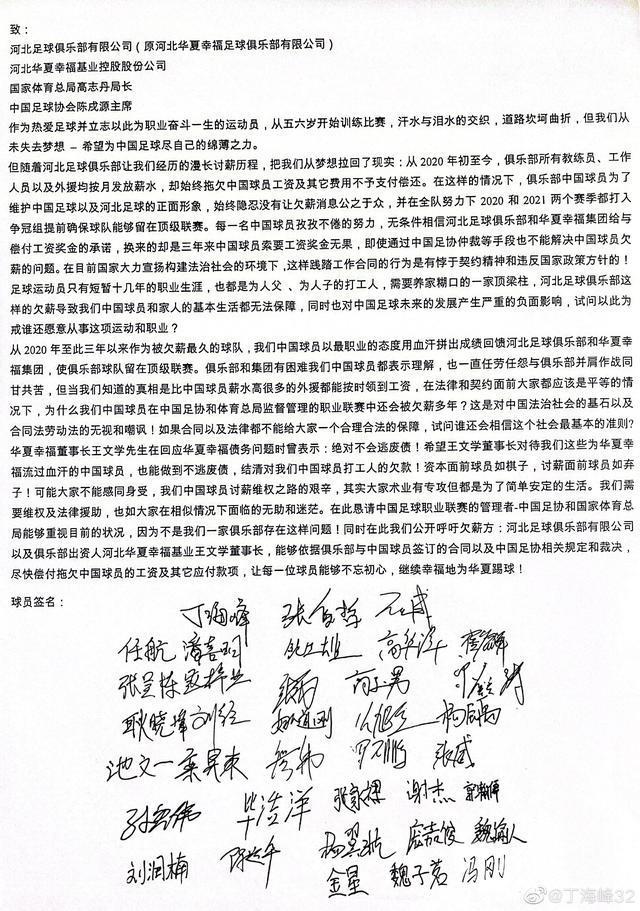 致：
河北足球俱乐部有限公司（原河北华夏幸福足球俱乐部有限公司）
河北华夏幸福基业控股股份公司
国家体育总局高志丹局长
中国足球协会陈戌源主席
作为热爱足球并立志以此为职业奋斗一生的运动员，从五六岁开始训练比赛，汗水与泪水的交织，道路坎坷曲折，但我们从
未失去梦想 – 希望为中国足球尽自己的绵薄之力。
但随着河北足球俱乐部让我们经历的漫长讨薪历程，把我们从梦想拉回了现实：从 2020 年初至今，俱乐部所有教练员、工作
人员以及外援均按月发放薪水，却始终拖欠中国球员工资及其它费用不予支付偿还。在这样的情况下，俱乐部中国球员为了
维护中国足球以及河北足球的正面形象，始终隐忍没有让欠薪消息公之于众，并在全队努力下 2020 和 2021 两个赛季都打入
争冠组提前确保球队能够留在顶级联赛。每一名中国球员孜孜不倦的努力，无条件相信河北足球俱乐部和华夏幸福集团给与
偿付工资奖金的承诺，换来的却是三年来中国球员索要工资奖金无果，即使通过中国足协仲裁等手段也不能解决中国球员欠
薪的问题。在目前国家大力宣扬构建法治社会的环境下，这样践踏工作合同的行为是有悖于契约精神和违反国家政策方针的！
足球运动员只有短暂十几年的职业生涯，也都是为人父 、为人子的打工人，需要养家糊口的一家顶梁柱，河北足球俱乐部这
样的欠薪导致我们中国球员和家人的基本生活都无法保障，同时也对中国足球未来的发展产生严重的负面影响，试问以此为
戒谁还愿意从事这项运动和职业？
从 2020 年至此三年以来作为被欠薪最久的球队，我们中国球员以最职业的态度用血汗拼出成绩回馈河北足球俱乐部和华夏幸
福集团，使俱乐部球队留在顶级联赛。俱乐部和集团有困难我们中国球员都表示理解，也一直任劳任怨与俱乐部并肩作战同
甘共苦，但当我们知道的真相是比中国球员薪水高很多的外援都能按时领到工资，在法律和契约面前大家都应该是平等的情
况下，为什么我们中国球员在中国足协和体育总局监督管理的职业联赛中还会被欠薪多年？这是对中国法治社会的基石以及
合同法劳动法的无视和嘲讽！如果合同以及法律都不能给大家一个合理合法的保障，试问谁还会相信这个社会最基本的准则？
华夏幸福董事长王文学先生在回应华夏幸福债务问题时曾表示：绝对不会逃废债！希望王文学董事长对待我们这些为华夏幸
福流过血汗的中国球员，也能做到不逃废债，结清对我们中国球员打工人的欠款！资本面前球员如棋子，讨薪面前球员如弃
子！可能大家不能感同身受，我们中国球员讨薪维权之路的艰辛，其实大家术业有专攻但都是为了简单安定的生活。我们需
要维权及法律援助，也如大家在相似情况下面临的无助和迷茫。在此恳请中国足球职业联赛的管理者-中国足协和国家体育总
局能够重视目前的状况，因为不是我们一家俱乐部存在这样问题！同时在此我们公开呼吁欠薪方：河北足球俱乐部有限公司
以及俱乐部出资人河北华夏幸福基业王文学董事长，能够依据俱乐部与中国球员签订的合同以及中国足协相关规定和裁决，
尽快偿付拖欠中国球员的工资及其它应付款项，让每一位球员能够不忘初心，继续幸福地为华夏踢球！
球员签名：
丁海峰
任航 潘喜明 高华泽
张呈栋
耿晓峰 刘径
池文一 张威
毕浩洋 张家棵 谢杰
刘洄楠 庞嘉俊
金星 魏子茗 冯刚
@丁海峰32